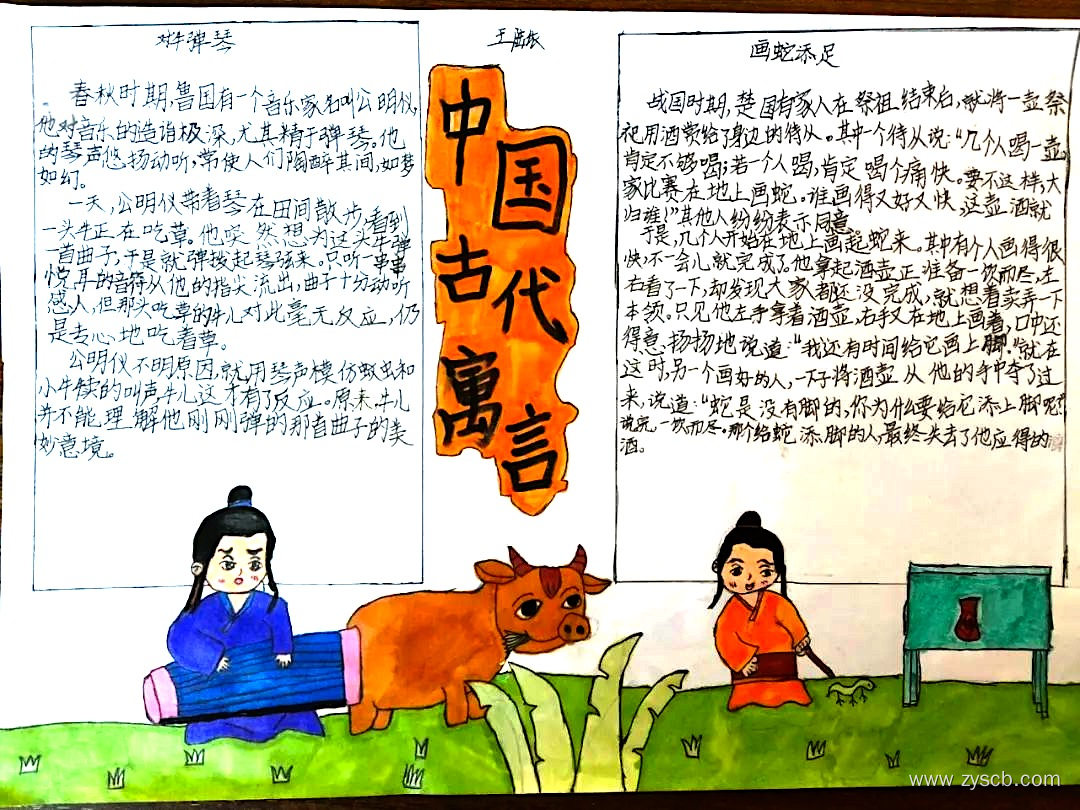 对牛弹琴
春秋时期,鲁国有一个音乐家名叫公明仪,
他对音乐的造诣极深,尤其精于弹琴。他
的琴声悠扬动听,常使人们陶醉其间,如梦
如幻。
一天,公明仪带着琴在田间散步,看到
一头牛正在吃草。他突然想为这头牛弹
一首曲子,于是就弹拨起琴弦来。只听一串串
悦耳的音符从他的指尖流出,曲子十分动听
感人,但那头吃草的牛儿对此毫无反应,仍
是专心地吃着草。
公明仪不明原因,就用琴声模仿蚊虫和
小牛犊的叫声,牛儿这才有了反应。原来,牛儿
并不能理解他刚刚弹的那首曲子的美
妙意境。
中国
古代
寓言
画蛇添足
战国时期,楚国有家人在祭祖结束后,就将一壶祭
祀用酒赏给了身边的侍从。其中一个侍从说:“几个人喝一壶,
肯定不够喝;若一个人喝,肯定喝个痛快。要不这样,大
家比赛在地上画蛇。谁画得又好又快,这壶酒就
归谁!”其他人纷纷表示同意。
于是,几个人开始在地上画起蛇来。其中有个人画得很
快,不一会儿就完成了。他拿起酒壶正准备一饮而尽,左
右看了一下,却发现大家都还没完成,就想着卖弄一下
本领。只见他左手拿着酒壶,右手又在地上画着,口中还
得意扬扬地说道:“我还有时间给它画上脚。”就在
这时,另一个画好的人,一下子将酒壶从他的手中夺了过
来,说道:“蛇是没有脚的,你为什么要给它添上脚呢?”
说完一饮而尽。那个给蛇添脚的人,最终失去了他应得的
酒。
www.zyscb.com